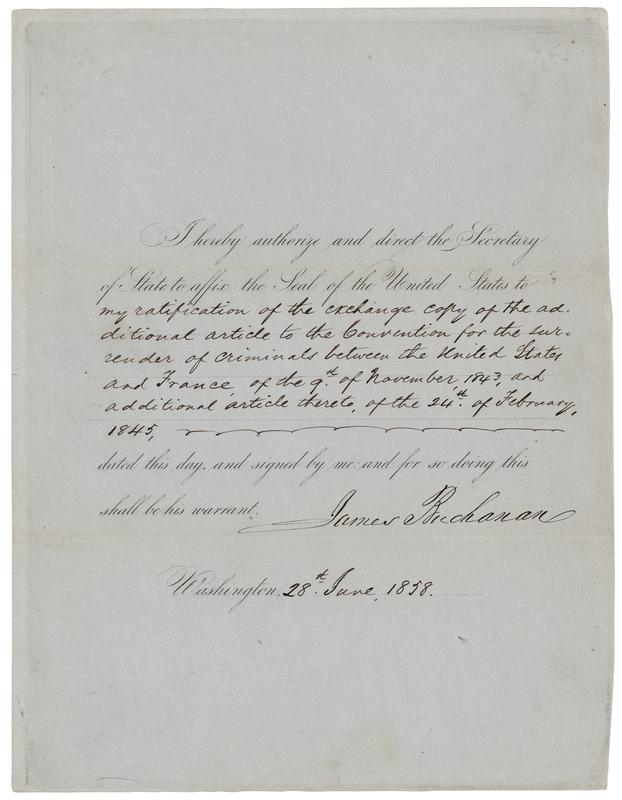 I hereby authorize and direct the Secretary
of State to affix the Seal of the United States to
my ratification of the exchange copy of the ad-
ditional article to the Convention for the sur-
render of criminals between the United States
and France, of the 9th. of November, 1843, and
additional article thereto, of the 24th. of February,
1845,
dated this day, and signed by me: and for so doing this
shall be his warrant.
James Buchanan
Washington, 28th. June, 1858.